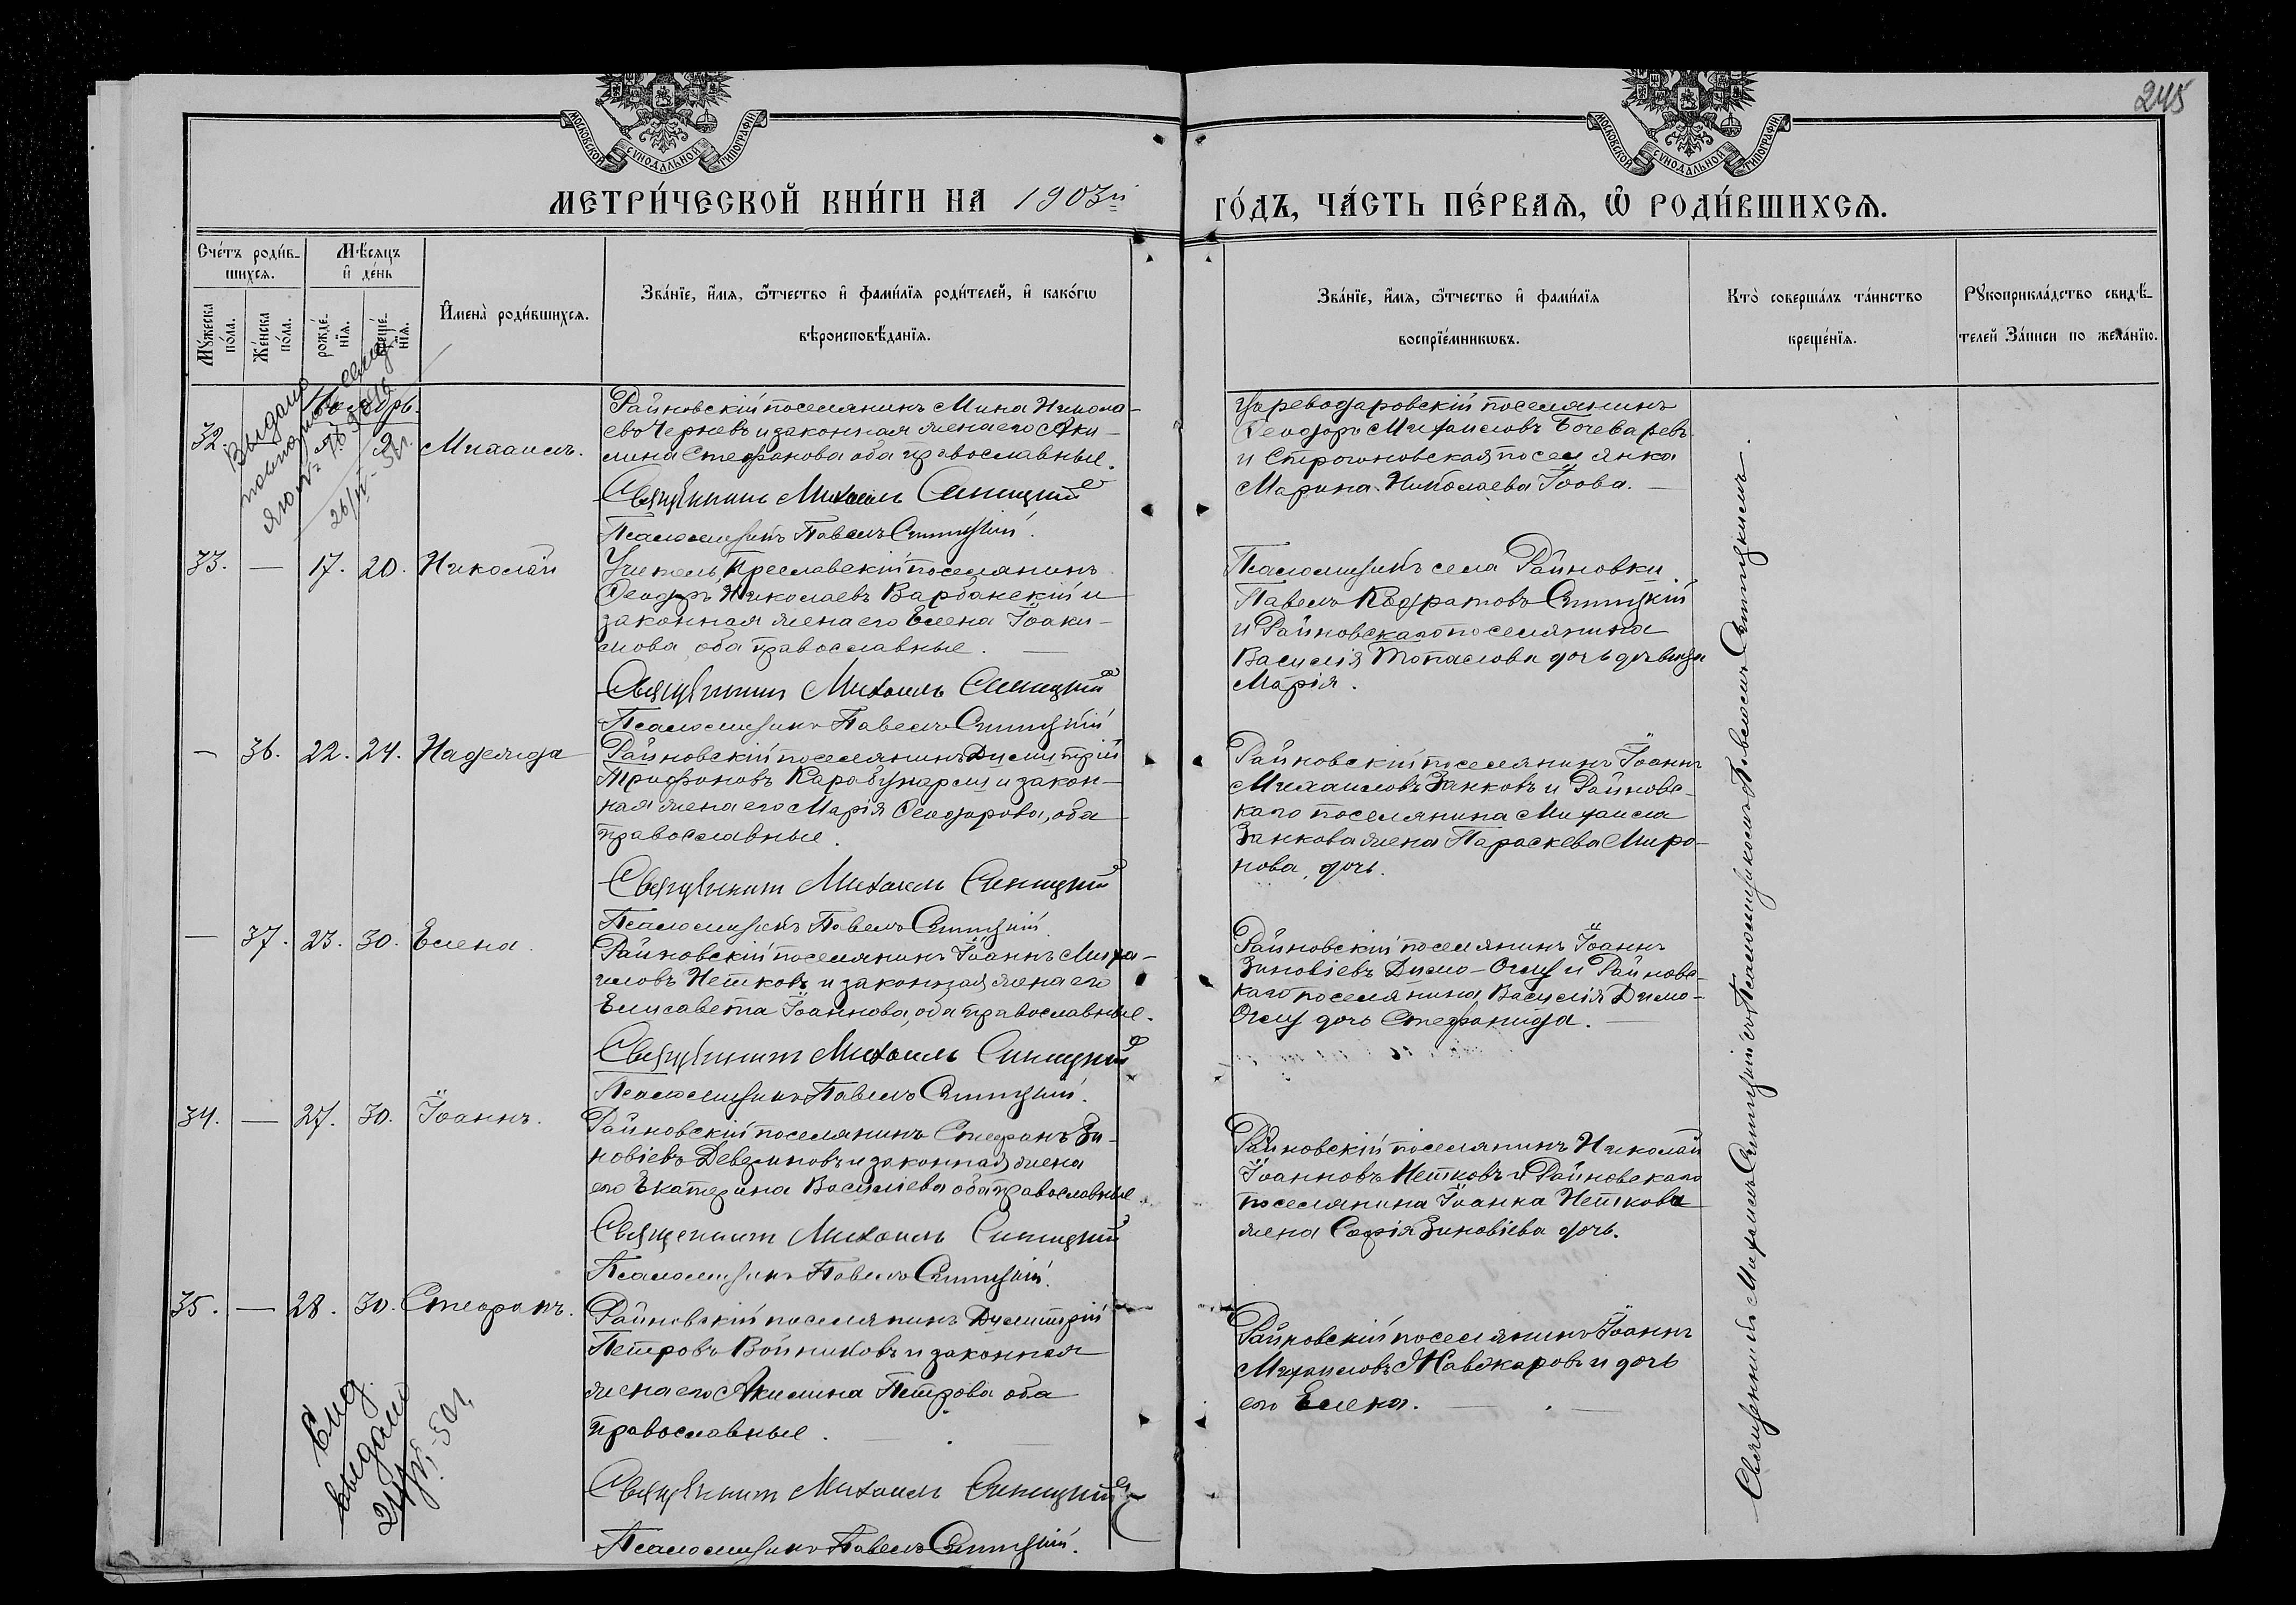 245
МОСКОВСКОЙ СѴНОДАЛЬНОЙ ТИПОГРАФІИ
МОСКОВСКОЙ СѴНОДАЛЬНОЙ ТИПОГРАФІИ
МЕТРИ́ЧЕСКОЙ КНИ́ГИ НА 1903й
ГО́ДЪ, ЧА́СТЬ ПЕ́РВАѦ, Ѡ҆ РОДИ́ВШИХСѦ.
Сче́тъ роди́в-
шихсѧ.
Мѣ́сѧцъ
и҆ де́нь
Мꙋ́жеска по́ла.
Же́нска по́ла.
рожде́-
нїѧ.
креще́-
нїѧ.
И҆мена̀ роди́вшихсѧ.
Зва́нїе, и҆́мѧ, ѻ҆́тчество и҆ фами́лїѧ роди́телей, и҆ како́гѡ
вѣроисповѣ́данїѧ.
Зва́нїе, и҆́мѧ, ѻ҆́тчество и҆ фами́лїѧ
воспрїе́мникѡвъ.
Кто̀ соверша́лъ та́инство
креще́нїѧ.
Рꙋкоприкла́дство свидѣ́-
телей За́писи по жела́нїю.
Выдано
26/IV-50г.
Ноябрь.
32.
2
Михаилъ.
Райновскій поселянинъ Мина Никола-
евъ Черневъ и законная жена его Аки-
лина Стефанова оба православные.
Священникъ Михаилъ Синицкий
Псаломщикъ Павелъ Синицкій.
Цареводаровскій поселянинъ
Феодоръ Михаиловъ Бочеваревъ
и Строгоновская поселянка
Марина Николаева Іовова.
33. — 17. 20. Николай
Учитель, Преславскій поселянинъ
Феодоръ Николаевъ Варбанскій и
законная жена его Елена Іоаки-
мова, оба православные.
Священникъ Михаилъ Синицкий
Псаломщикъ Павелъ Синицкій
Псаломщикъ села Райновки
Павелъ Кодратовъ Синицкій
и Райновскаго поселянина
Василія Топалова дочь девица
Марія.
— 36. 22. 24. Надежда
Райновскій поселянинъ Димитрій
Трифоновъ Карабунарли и закон-
ная жена его Марія Феодорова, оба
православные.
Священникъ Михаилъ Синицкий
Псаломщикъ Павелъ Синицкій.
Райновскій поселянинъ Іоаннъ
Михаиловъ Занковъ и Райновс-
каго поселянина Михаила
Занкова жена Параскева Миро-
нова, дочь.
— 37. 23. 30. Елена.
Райновскій поселянинъ Іоаннъ Миха-
иловъ Нетковъ и законная жена его
Елисавета Іоаннова, оба православные.
Священникъ Михаилъ Синицкий
Псаломщикъ Павелъ Синицкій.
Райновскій поселянинъ Іоаннъ
Зиновіевъ Димо-Оглу и Райновс-
каго поселянина Василія Димо-
Оглу дочь Стефанида.
34. — 27. 30. Іоаннъ.
Райновскій поселянинъ Стефанъ Зи-
новіевъ Девежиновъ и законная жена
его Екатерина Василіева оба православные.
Священникъ Михаилъ Синицкий
Псаломщикъ Павелъ Синицкій.
Райновскій поселянинъ Николай
Іоанновъ Нетковъ и Райновскаго
поселянина Іоанна Неткова
жена Софія Зиновіева дочь.
35. — 28. 30. Стефанъ.
Райновскій поселянинъ Димитрій
Петровъ Войниковъ и законная
жена его Акилина Петрова оба
православные.
Священникъ Михаилъ Синицкий
Псаломщикъ Павелъ Синицкій.
Райновскій поселянинъ Іоаннъ
Михаиловъ Жавжаровъ и дочь
его Елена.
выдано
Священникъ Михаилъ Синицкій съ Псаломщикомъ Павломъ Синицкимъ.